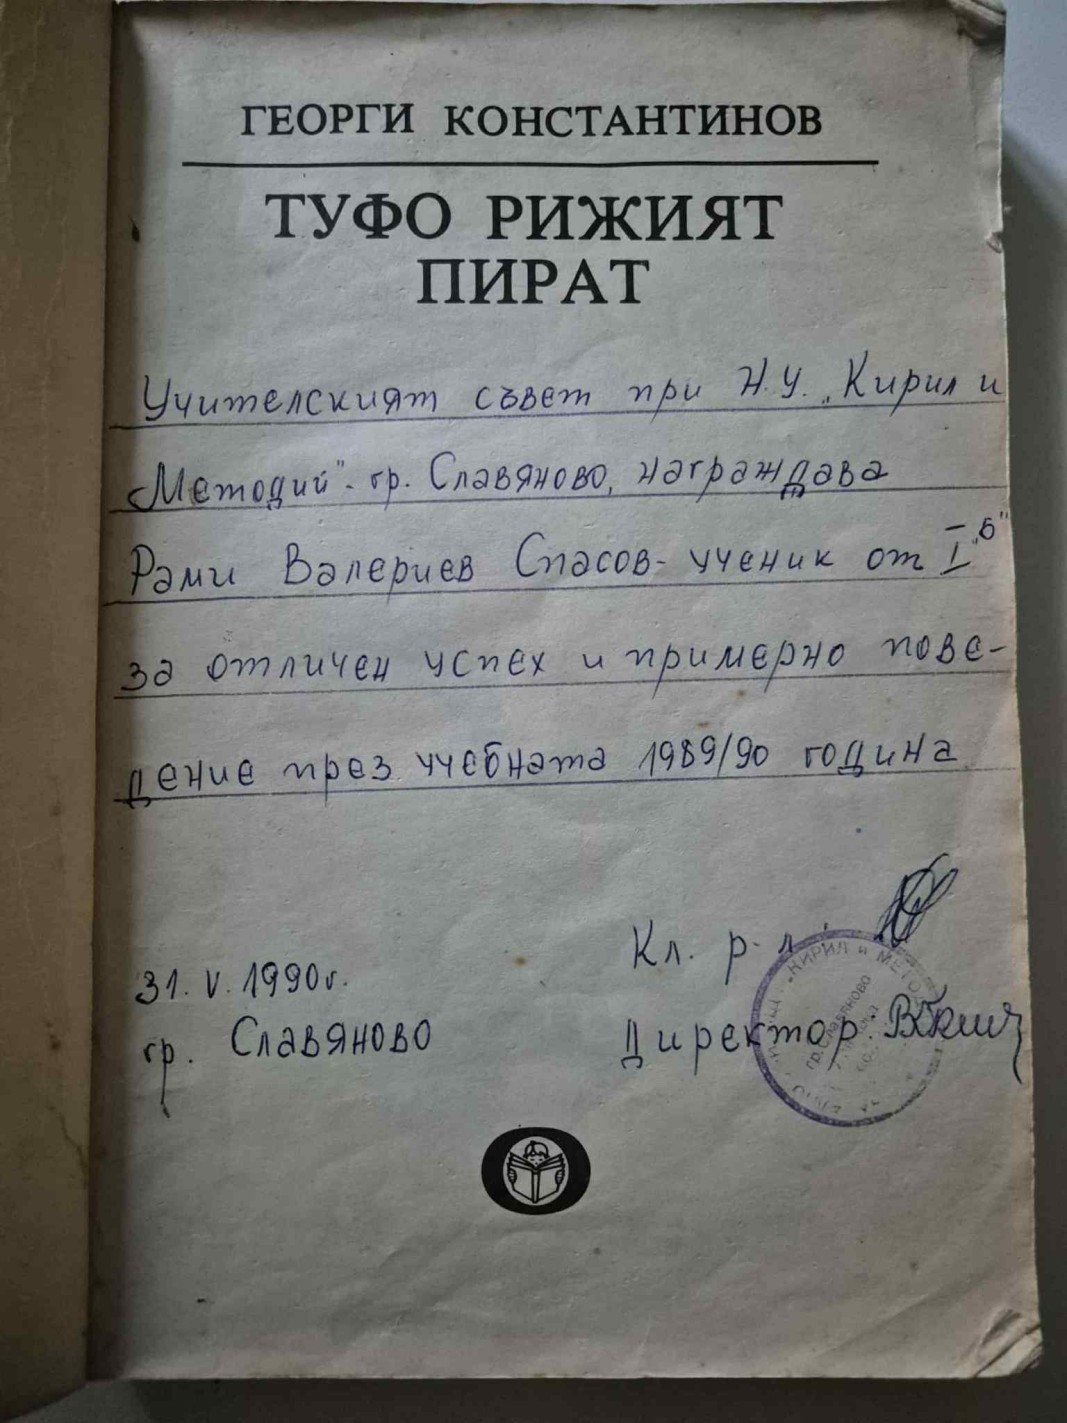 ГЕОРГИ КОНСТАНТИНОВ
ТУФО РИЖИЯТ
ПИРАТ
Учителският съвет при Н.У. „Кирил и
Методий" - гр. Славяново, награждава
Рами Валериев Спасов - ученик от I "б"
за отличен успех и примерно пове-
дение през учебната 1989/90 година
31. V. 1990г.
гр. Славяново
Кл. р-л:
Директор:
"КИРИЛ и МЕТОД
гр. Славяново